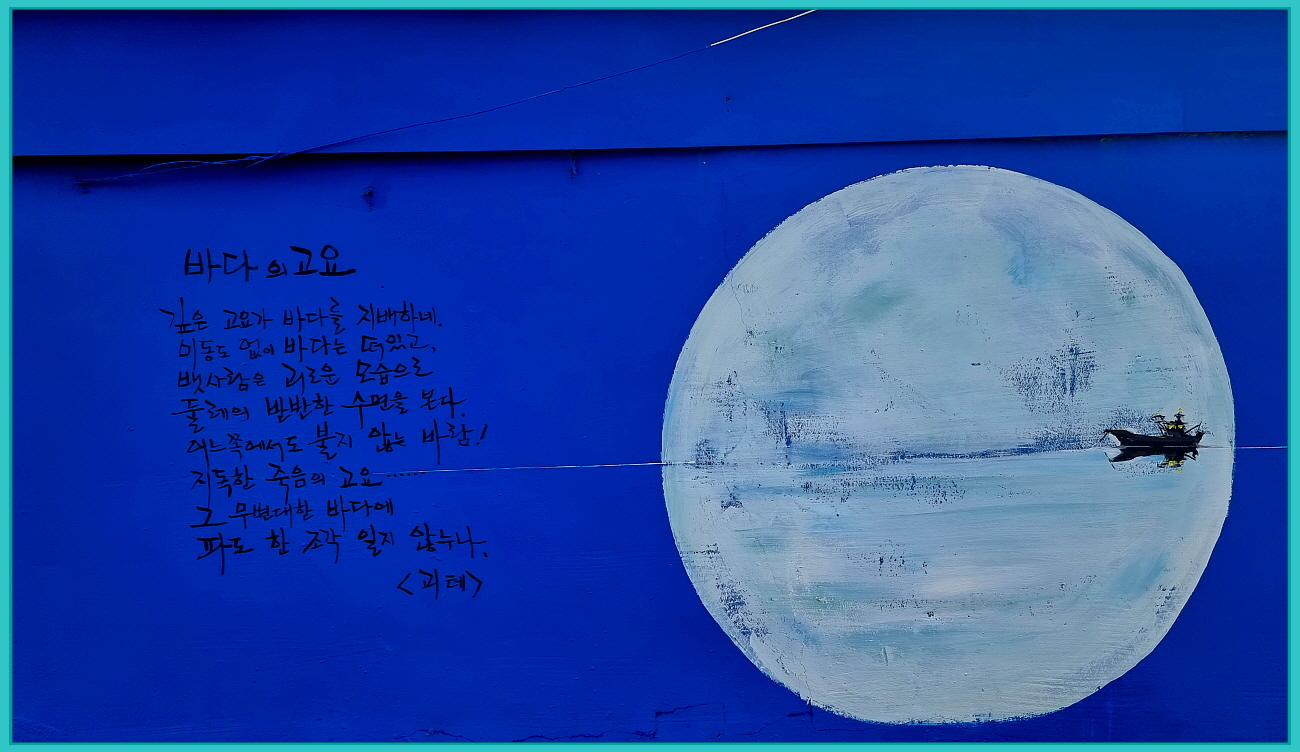 바다의 고요
깊은 고요가 바다를 지배하네.
미동도 없이 바다는 떠있고,
뱃사람은 괴로운 모습으로
둘레의 반반한 수면을 본다.
어느쪽에서도 불지 않는 바람!
지독한 죽음의 고요........
그 무변대한 바다에
파도 한 조각 일지 않누나.
<괴테>